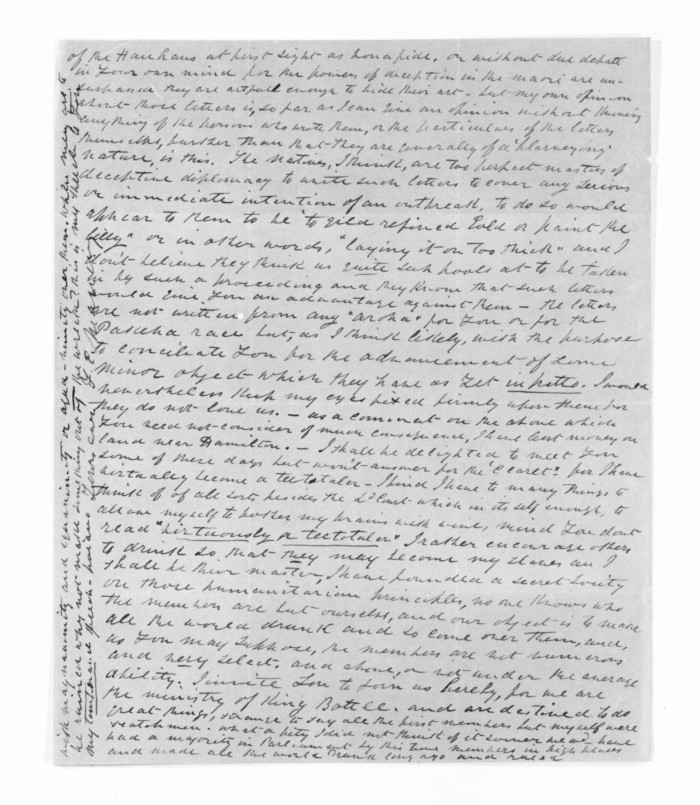 of the Hauhaus at first sight as bonafide, or without due debate
in your own mind for the powers of deception in the maori are un-
surpassed they are artfull enough to hide their art – but my own opinion
about those letters is, so far as I can give an opinion without knowing
anything of the persons who wrote them, or the particulars of the letters
themselves, further than that they are generally of a "blarneying"
nature, is this. The Natives, I think, are too perfect masters of
deceptive diplomacy to write such letters to cover any serious
or immediate intention of an outbreak, to do so would
appear to them to be "to gild refined Gold or paint the
lilly" or in other words, "laying it on too thick" and I
don't believe they think us quite such fools as to be taken
in by such a proceeding and they know that such letters
would give you an advantage against them – the letters
are not written from any "aroha" for you or for the
Pakeha race but, as I think likely, with the purpose
to conciliate you for the advancement of some
minor object which they have as yet in petto. I would
nevertheless keep my eyes fixed firmly upon them for
they do not love us. – as a comment on the above which
you need not consider of much consequence, I have lent money on
land near Hamilton. – I shall be delighted to meet you
some of these days but won't answer for the "Claret" for I have
virtually become a teetotaler – I find I have to many things to
think of of all sorts besides the Ld Court which in itself enough, to
allow myself to bother my brains with wine, mind you dont
read "virtuously a teetotaler" I rather encourage others
to drink so that they may become my slaves and I
shall be their master, I have founded a secret Society
on those humanitarian principles, no one knows who
the members are but ourselves, and our object is to make
all the world drunk and so come over them, and,
as you may suppose, the members are not numerous
and very select, and above, or not under the average
ability. I invite you to join us freely, for we are
the ministry of King Bottle. and are destined to do
great things, strange to say all the first members but myself were
scotchmen. what a pity I did not think of it sooner we'd have
had a majority in Parliament by this time members in high places
and made all the world drunk long ago and ruled
with magnanimity and equanimity or aqua-nimity over them. When men are to
be ruined why not make something out of the wreck? this is my speech to you
my temperance speech – yours ever F. E. Maning